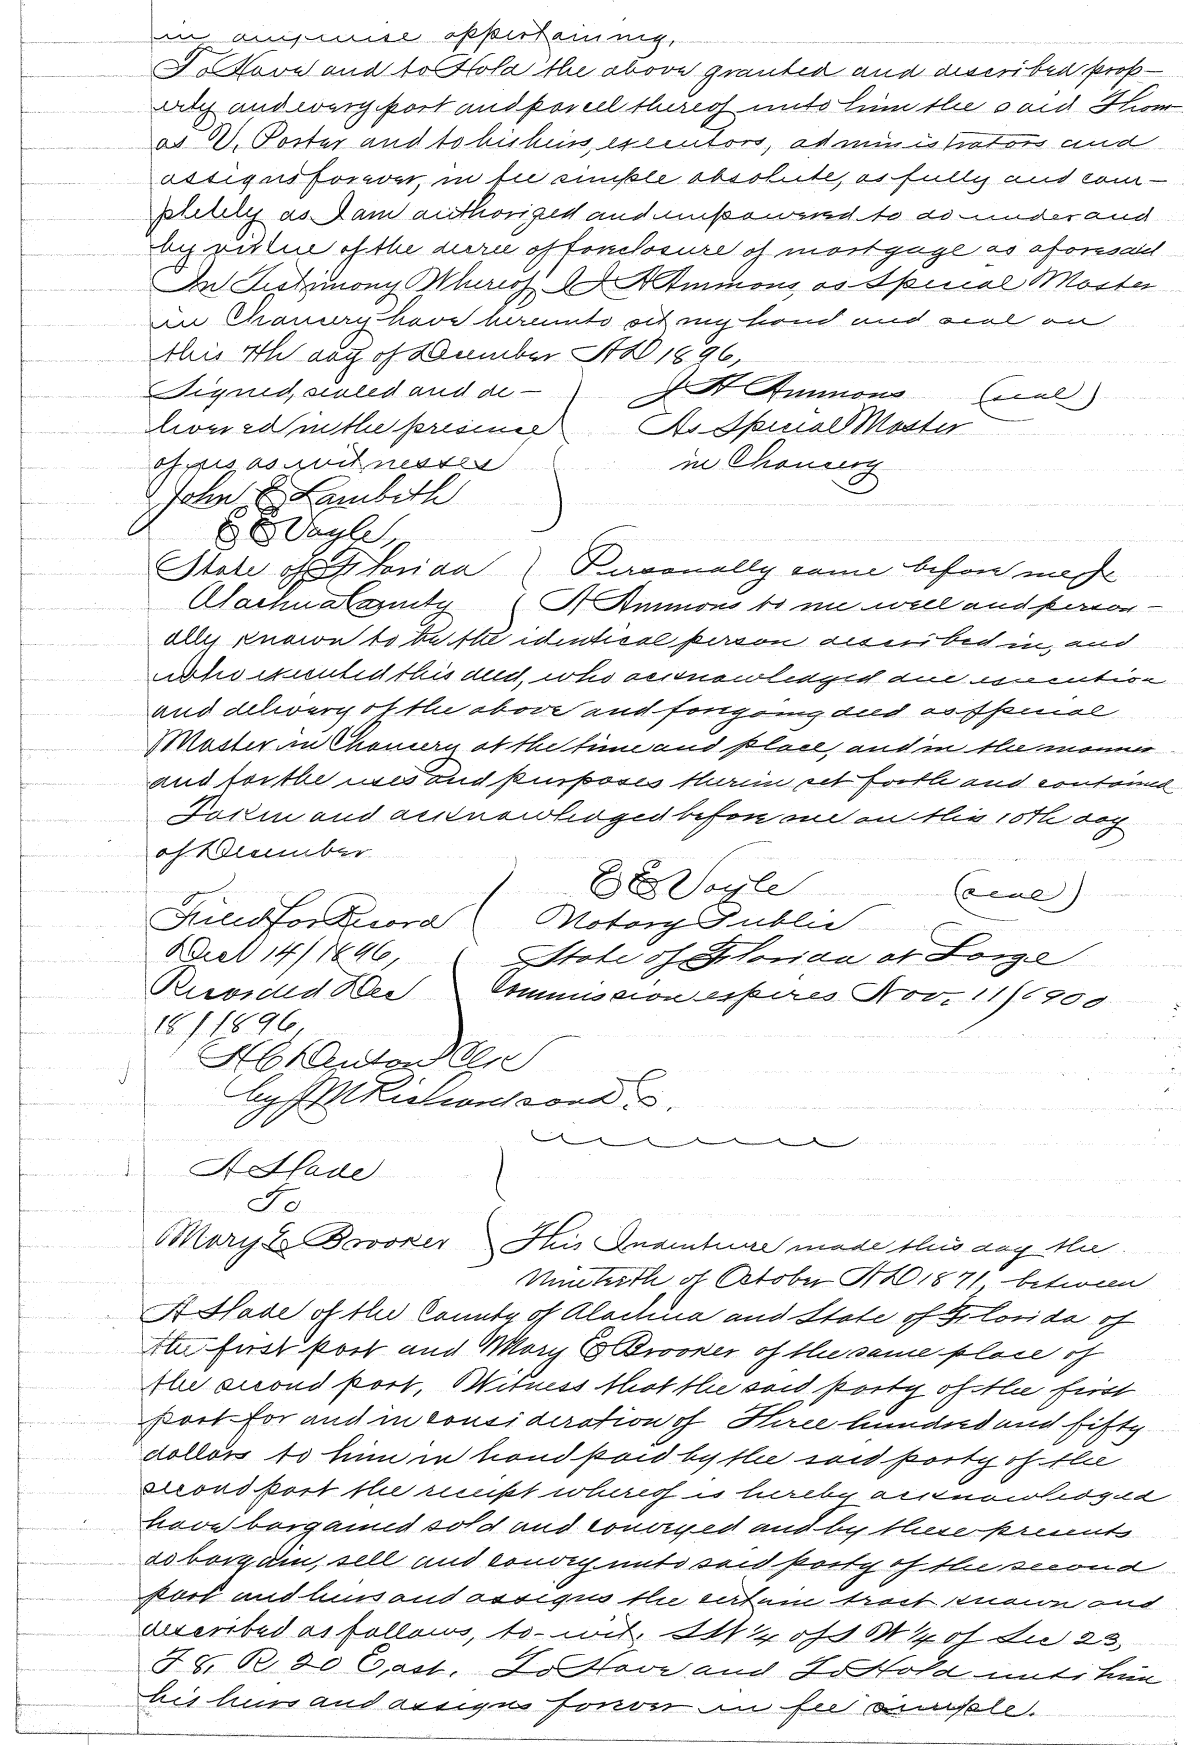 in anywise appertaining,
To Have and to Hold the above granted and described prop-
erty and every part and parcel thereof unto him the said Thom
as V. Porter and to his heirs, executors, administrators and
assigns forever, in fee simple absolute, as fully and com-
pletely as I am authorized and empowered to do under and
by virtue of the decree of foreclosure of mortgage as aforesaid
In Testimony Whereof I J A Ammons, as Special Master
in Chancery have hereunto set my hand and seal on
this 7th day of December AD 1896,
Signed, sealed and de- J A Ammons (seal)
livered in the presence As Special Master
of us as witnesses in Chancery
John E Lambeth
E E Voyle,
State of Florida Personally came before me J
Alachua County A Ammons to me well and person-
ally known to be the identical person described in, and
who executed this deed, who acknowledged due execution
and delivery of the above and foregoing deed as Special
Master in Chancery at the time and place, and in the manner
and for the uses and purposes therein set forth and contained
Taken and acknowledged before me on this 10th day
of December
E E Voyle (seal)
Filed for Record Notary Public
Dec 14/1896, State of Florida at Large
Recorded Dec Commission expires Nov. 11/1900
18/1896,
H C Denton Clk
by J M Richardson D.C.
A Slade
To
Mary E Brooker This Indenture made this day the
Ninetieth of October AD 1871, between
A Slade of the County of Alachua and State of Florida of
the first part and Mary E Brooker of the same place of
the second part, Witness that the said party of the first
part for and in consideration of Three hundred and fifty
dollars to him in hand paid by the said party of the
second part the receipt whereof is hereby acknowledged
have bargained sold and conveyed and by these presents
do bargain, sell and convey unto said party of the second
part and heirs and assigns the certain tract known and
described as follows, to-wit. SW 1/4 of S W 1/4 of Sec 23,
T 8, R 20 East. To Have and To Hold unto him
his heirs and assigns forever in fee simple.